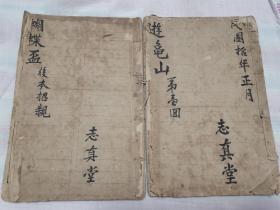 蝴蝶盃
後本招親
志真堂
民國拾年正月
遊龜山
第壹回
志真堂